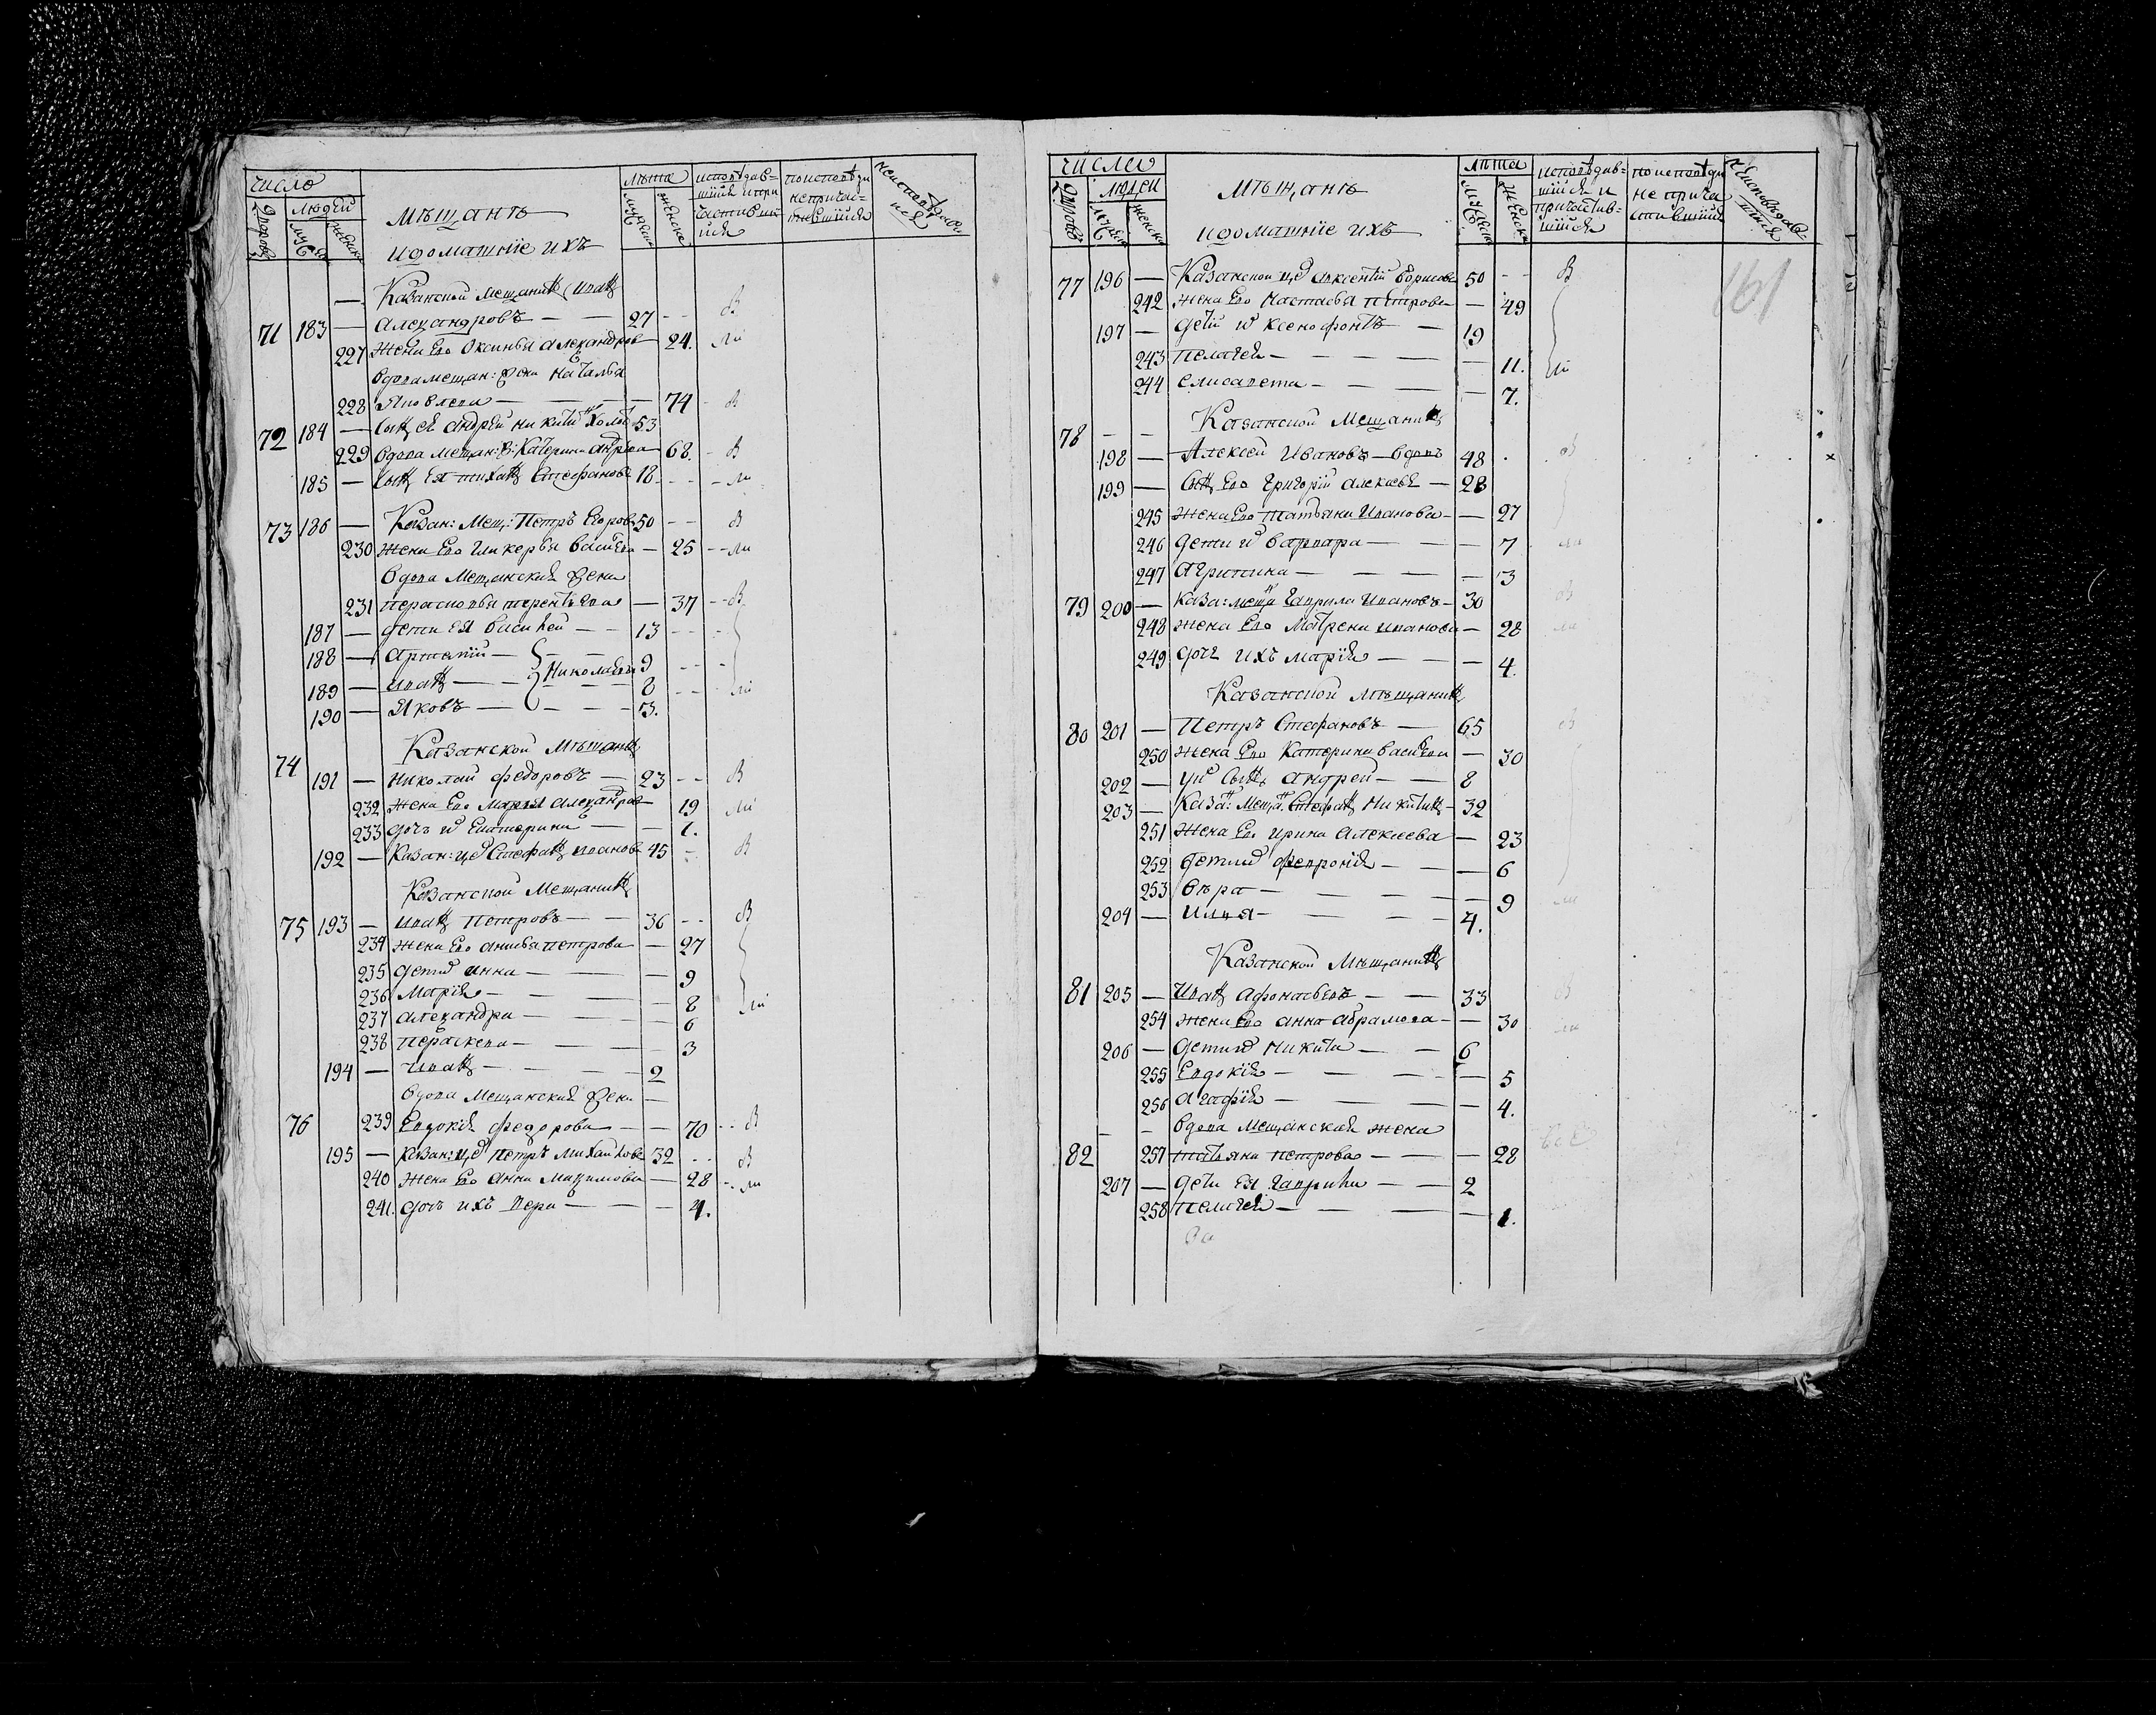 число
людей
дворовъ
муска
женска
мѣщанъ
и домашніе ихъ
лѣта
мужеска
женска
исповѣдав=
шійся и при
частивші
ися
поисповѣди
непричас=
тившійся
— Казанской мещанинъ Иванъ
71 183 — Александровъ — — 27 - - В
227 жена Его Оксинья Александров — 24. ли
вдова мещан: жена Наталья
228 Яковлева — — — 74 - В
72 184 — сынъ ея Андрей Никитинъ холос 53
229 вдова мещан: ж: Катерина Андрева — 68. - В
185 — сынъ Ея михаилъ Стефановъ 18 - - - ли
73 186 — Казан: Мещ: Петръ Егоровъ 50 - - В
230 жена Его Гликерья Васильева — 25 - - ли
вдова Мещанская жена
231 перасковья терентьева — 37 - - В
187 — дети Ея Василей — — 13 - - -
188 — Артемій — — Николаевы 9 - - -
189 — Иванъ — — — 8 - - - ли
190 — Яковъ — — — 3.
74 Казанской Мѣщанинъ
191 — Николай федоровъ — 23 - - В
232 жена Его Марья Александров — 19 ли
233 дочь и Екатерина — — 1.
192 — Казан: це Стефанъ Ивановъ 45 - - В
Казанской Мещанинъ
75 193 — Иванъ Петровъ — — 36 - - В
234 жена Его Анисья петрова — 27
235 дети и Анна — — — 9
236 Марія — — — — 8 ли
237 Александра — — — 6
238 Пераскева — — — 3
194 — Иванъ — — — 2
вдова Мещанская жена —
76 239 Евдокія федорова — — 70 - - В
195 — Казан: це Петръ Михайловъ 32 - - В
240 жена Его Анна Максимова — 28 - - ли
241. дочь ихъ Вера — — — 4.
числа
людей
дворовъ
мужеска
женска
мѣщанъ
и домашніе ихъ
лѣта
мужеска
женска
исповѣдав=
шійся и
причастив=
шійся
поисповѣди
не прича
стившійся
неисповѣдав=
шійся
161
77 196 — Казанской це Авксентій Борисовъ 50 - - В
242 жена Его Настасья петрова — — 49
197 — дети и Ксенофонтъ — 19
243 Пелагея — — — — — 11. ли
244 Елисавета — — — — 7.
78 — — Казанской Мещанинъ
198 — Алексей Ивановъ — вдовъ 48 . В
199 — сынъ Его Григорій Алексѣевъ — 28
245 жена Его татьяна Иванова — — 27
246 дети и варвара — — — 7 ли
247 Агрипина — — — — 3
79 200 — Каза: мещан Гаврила Ивановъ — 30 В
248 жена Его Матрена иванова — 28 ли
249 дочь ихъ марія — — — 4.
Казанской мѣщанинъ
80 201 — Петръ Стефановъ — 65 В
250 жена Его Катерина Васильева — 30
202 — у и сынъ Андрей — — 8
203 — Казан: Мещан: Стефанъ Никитинъ — 32
251 жена Его ирина Алексеева — 23
252 дети и февронія — — — 6
253 вѣра — — — — — 9 ли
204 — Илья — — — — 4.
Казанской Мѣщанинъ
81 205 — Иванъ Афонасьевъ — — 33 В
254 жена Его анна Абрамова — — 30 ли
206 — дети и Никита — — 6
255 Евдокія — — — — — 5
256 Агафія — — — — 4.
— — вдова мещанская жена
82 257 татьяна петрова — — — 28
207 — дети Ея Гаврила — — 2
258 Пелагея — — — — 1.